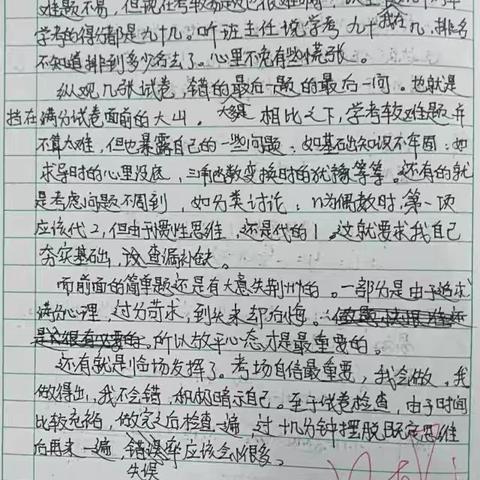 学考的得分都是九十几。听班主任说学考九十几,我在排名
不知道排到多少名去了。心里不免有些慌张。
纵观几张试卷,错的最后一题的最后一问。也就是
挡在满分试卷面前的大山。相比之下,学考较难题并
不算太难,但也暴露自己的一些问题,如基础知识不牢固:如
求导时的心里没底,三角函数变换时的犹豫等等。还有的就
是考虑问题不周到,如分类讨论:n为偶数时,第一项
应该代2,但由于惯性思维,还是代的1。这就要求我自己
夯实基础,查漏补缺。
而前面的简单题还是有大意失荆州的。一部分是由于追求
满分心理,过分苛求,到头来却后悔。
所以放平心态才是最重要的。
还有就是临场发挥了。考场自信最重要,我会做,我
做得出,我不会错,积极暗示自己。至于试卷检查,由于时间
比较充裕,做完之后检查一遍,过十几分钟摆脱既定思维
后再来一遍,失误率应该会小很多。